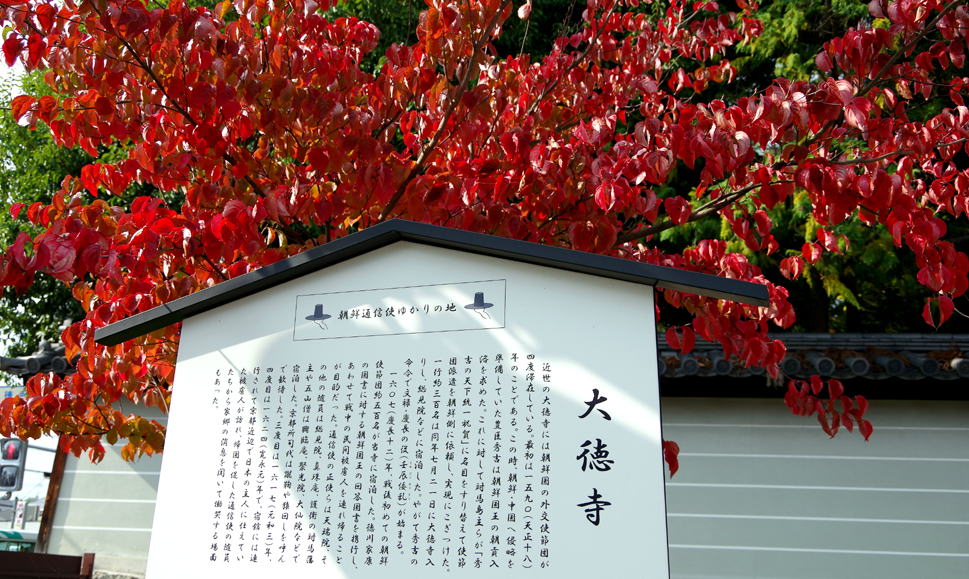 朝鮮通信使ゆかりの地
大徳寺
近世の大徳寺には朝鮮国の外交使節団が
四度滞在している。最初は一五九〇(天正十八)
年のことである。この時、朝鮮・中国へ侵略を
準備していた豊臣秀吉は朝鮮国王の朝貢入
洛を求めた。これに対して対馬島主らが「秀
吉の天下統一祝賀」に名目をすり替えて使節
団派遣を朝鮮側に依頼し、実現にこぎつけた。
一行約三百名は同年七月二一日に大徳寺入
りし、総見院などに宿泊した。やがて秀吉の
命令で文禄・慶長の役(壬辰倭乱)が始まる。
一六〇七(慶長十二)年、戦後初めての朝鮮
使節団約五百名が当寺に宿泊した。徳川家康
の国書に対する朝鮮国王の回答国書を携行し、
あわせて戦中の民間被虜人を連れ帰ること
が目的だった。通信使の正使らは天瑞院、そ
の他の随員は総見院、真珠庵、護衛の対馬藩
主や五山僧は興臨庵、聚光院、大仙院などで
宿泊した。京都所司代は蹴鞠や猿回しを呼ん
で歓待した。三度目は一六一七(元和三)年、
四度目は一六二四(寛永元)年で、宿館には連
行されて京都近辺で日本の主人に仕えてい
た被虜人が訪れ、帰国を促した通信使の随員
たちから家郷の消息を聞いて慟哭する場面
もあった。